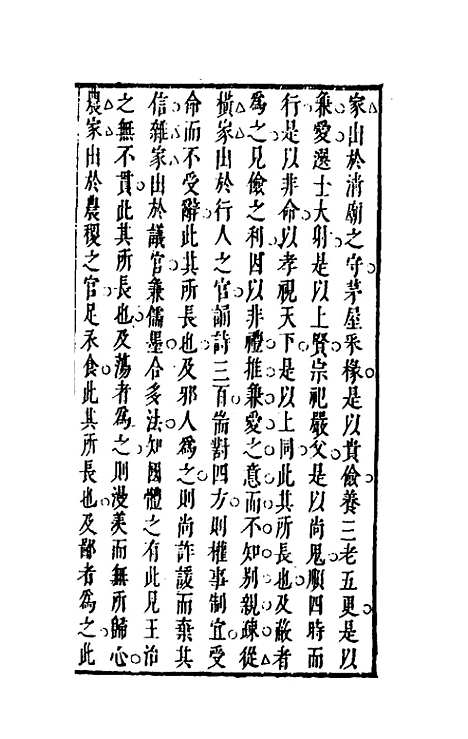 家出於清廟之守茅屋采椽是以貴儉養三老五更是以
兼愛選士大射是以上賢宗祀嚴父是以尚鬼順四時而
行是以非命以孝視天下是以上同此其所長也及蔽者
為之見儉之利因以非禮推兼愛之意而不知別親疎從
橫家出於行人之官誦詩三百耑對四方則權事制宜受
命而不受辭此其所長也及邪人為之則尚詐諼而棄其
信雜家出於議官兼儒墨合多法知國體之有此見王治
之無不貫此其所長也及蕩者為之則漫羨而無所歸心
農家出於農稷之官足承食此其所長也及鄙者為之此